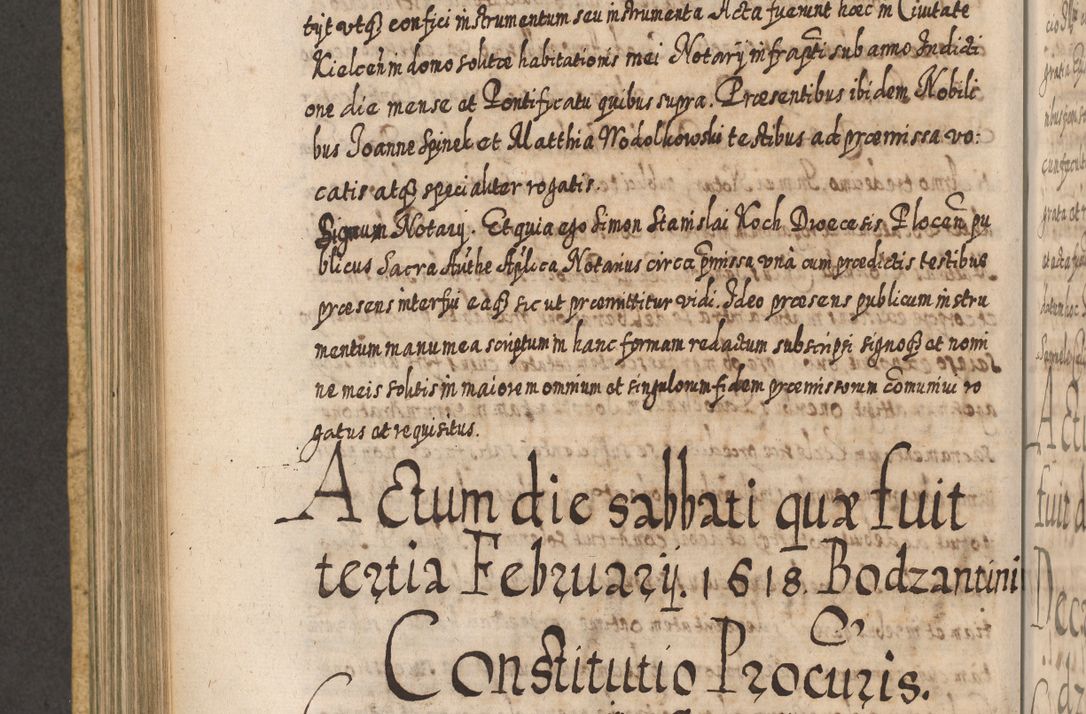 tijt utq₃ confici instrumentum seu instrumenta Acta fuerunt hæc in Civitate
Kielcen̄ in domo solitæ habitationis mei Notarij infrap̄ti sub anno Indicti
one die mense et Pontificatu quibus supra. Præsentibus ibidem Nobili
bus Joanne Spinek et Matthia Wodolkowski testibus ad præmissa vo:
catis atq₃ specialiter rogatis.
Signum Notarij. Et quia ego Simon Stanislai Koch Diœcesis Plocen̄ pu
blicus Sacra Auth̄e Ap̄lica Notarius circa p̄missa unà cum prædictis testibus
præsens interfui eaq₃ sic ut præmittitur vidi. Ideo præsens publicum instru
mentum manu mea scriptum in hanc formam redactum subscripsi signoq₃ et nomi
ne meis solitis in maiorem omnium et singulorum fidem præmissorum com̄uniui ro
gatus et requisitus.
Actum die sabbati quæ fuit
tertia Februarij. 1618. Bodzantini
Constitutio Procuris.